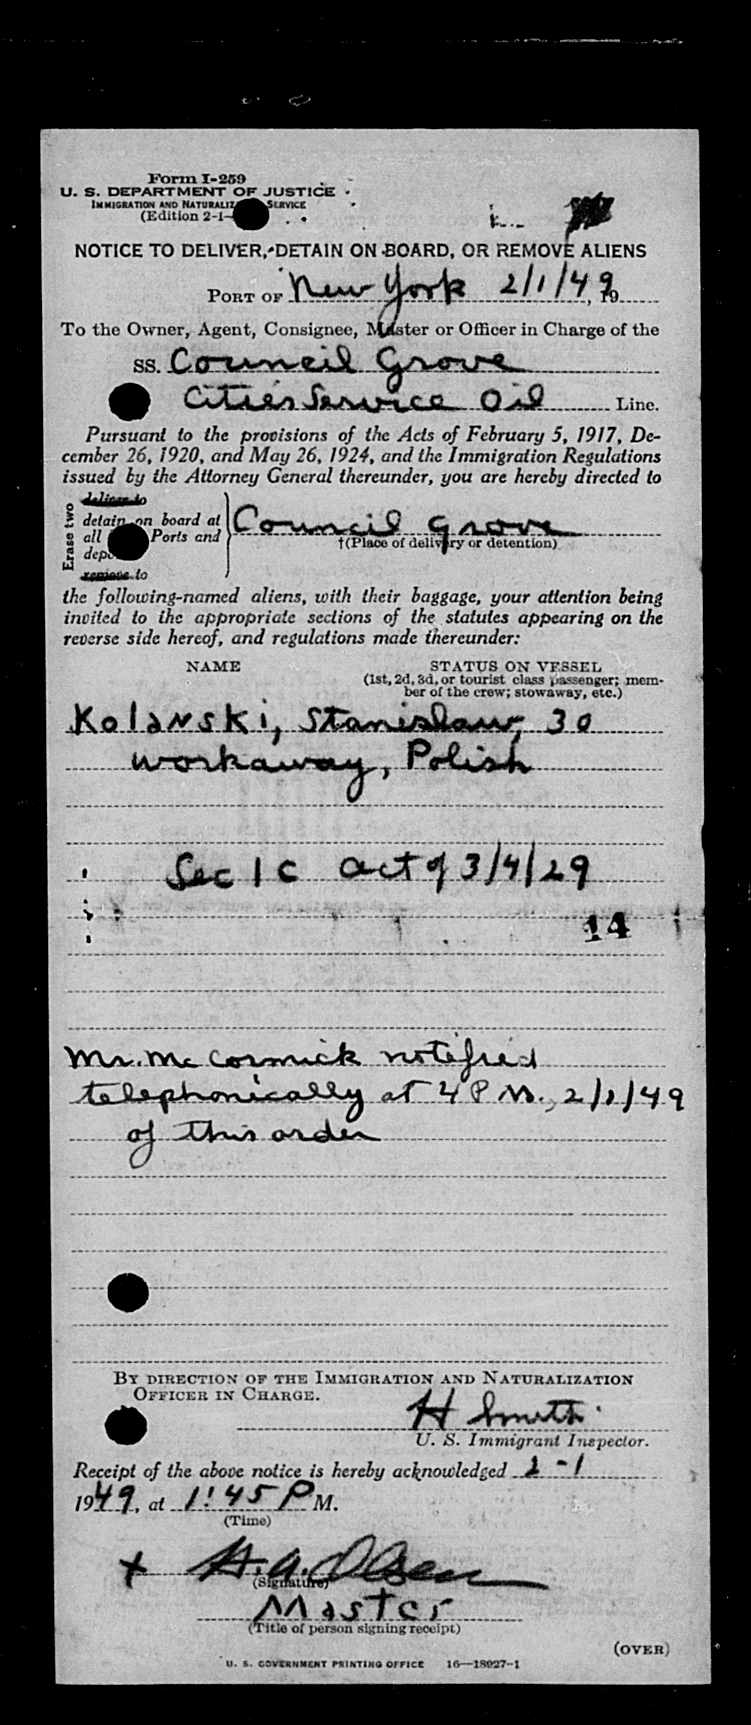 Form I-259
U. S. DEPARTMENT OF JUSTICE
IMMIGRATION AND NATURALIZ SERVICE
(Edition 2-1-
NOTICE TO DELIVER, DETAIN ON BOARD, OR REMOVE ALIENS
PORT OF New York 2/1/49, 19
To the Owner, Agent, Consignee, Master or Officer in Charge of the
SS. Council Grove
Cities Service Oil Line.
Pursuant to the provisions of the Acts of February 5, 1917, De-
cember 26, 1920, and May 26, 1924, and the Immigration Regulations
issued by the Attorney General thereunder, you are hereby directed to
Erase two
deliver to
detain on board at
all Ports and
remove to
Council Grove
†(Place of delivery or detention)
the following-named aliens, with their baggage, your attention being
invited to the appropriate sections of the statutes appearing on the
reverse side hereof, and regulations made thereunder:
NAME STATUS ON VESSEL
(1st, 2d, 3d, or tourist class passenger; mem-
ber of the crew; stowaway, etc.)
Kolanski, Stanislaw, 30
workaway, Polish
Sec 1 C act of 3/4/29
14
Mr. McCormick notified
telephonically at 4 P M., 2/1/49
of this order
BY DIRECTION OF THE IMMIGRATION AND NATURALIZATION
OFFICER IN CHARGE.
H Smith
U. S. Immigrant Inspector.
Receipt of the above notice is hereby acknowledged 2-1
1949, at 1:45 P M.
(Time)
x H. A. Olsen
(Signature)
Master
(Title of person signing receipt)
(OVER)
U. S. GOVERNMENT PRINTING OFFICE 16—18927-1